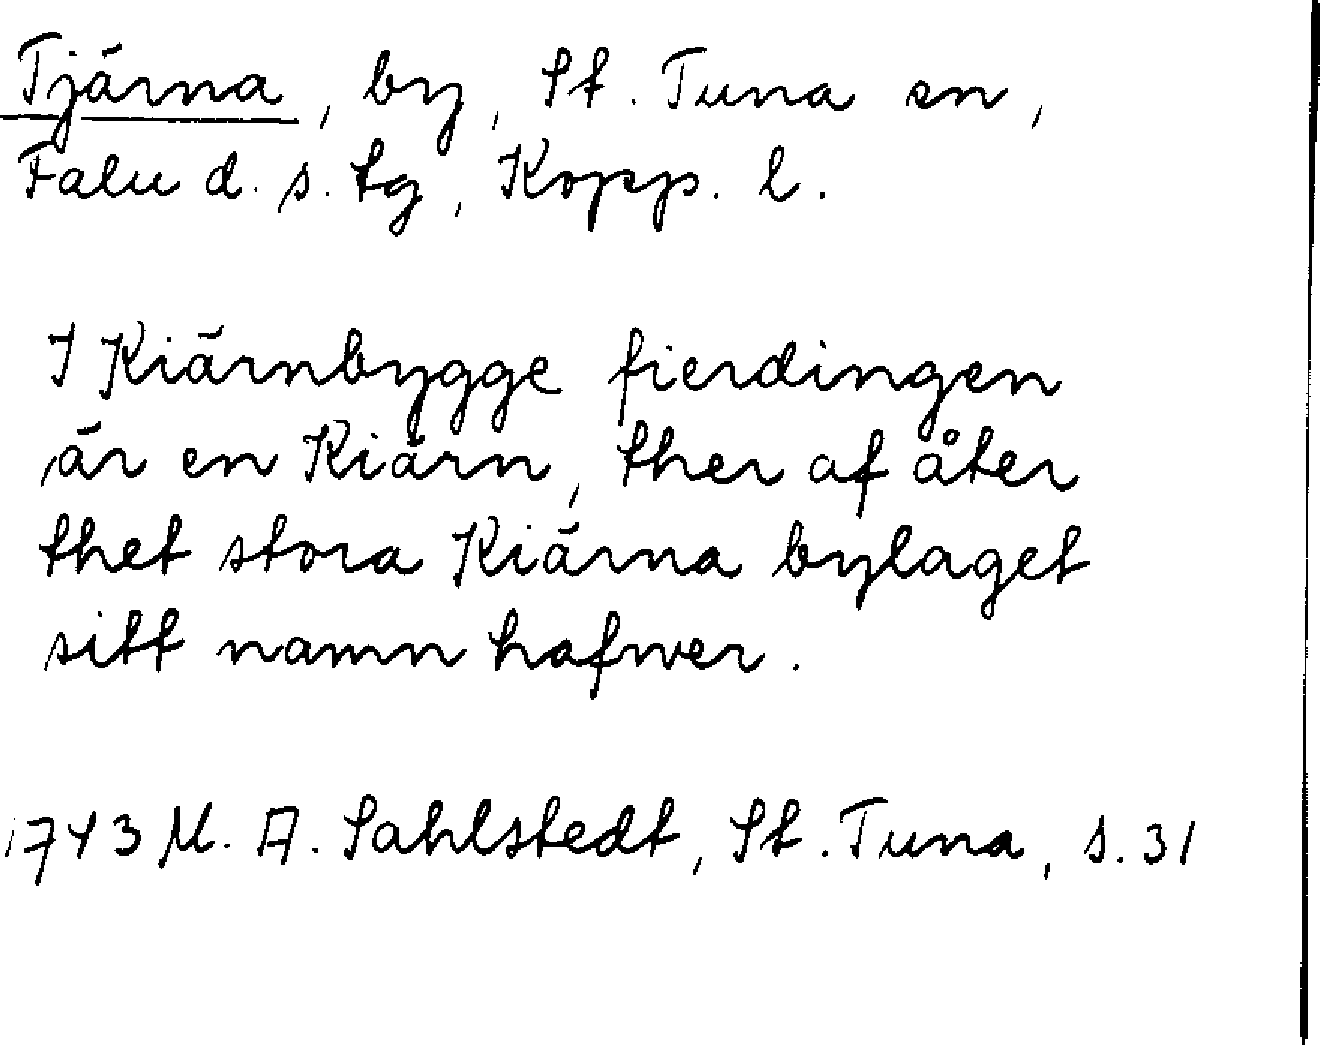 Tjärna, by, St. Tuna sn,
Falu d. s. tg, Kopp. l.
I Kiärnbygge fierdingen
är en Kiärn, ther af åter
thet stora Kiärna bylaget
sitt namn hafwer.
1743 M. A. Sahlstedt, St. Tuna, s. 31